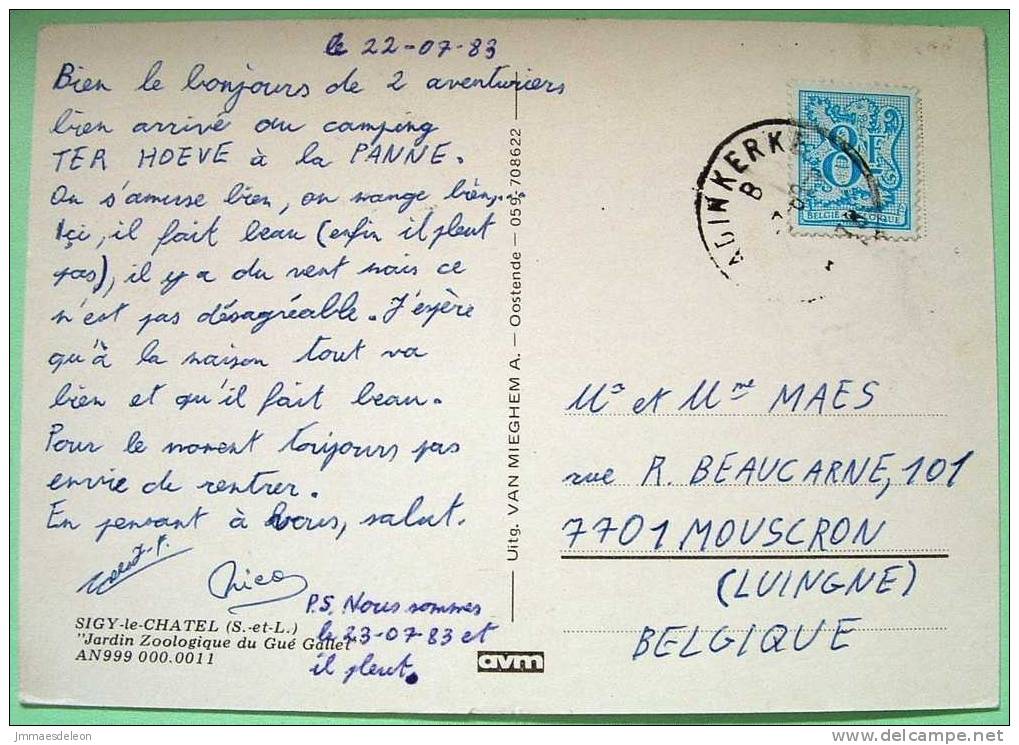 le 22-07-83
Bien le bonjours de 2 aventuriers
bien arrivé au camping
TER HOEVE à la PANNE.
On s'amuse bien, on mange bien...
Içi, il fait beau (enfin il pleut
pas), il y a du vent mais ce
n'est pas désagréable. J'espère
qu'à la maison tout va
bien et qu'il fait beau.
Pour le moment toujours pas
envie de rentrer.
En pensant à vous, salut.
Nico
P.S. Nous sommes
le 23-07-83 et
il pleut.
SIGY-le-CHATEL (S.-et-L.)
"Jardin Zoologique du Gué Gallet"
AN999 000.0011
Uitg. VAN MIEGHEM A. — Oostende — 059/708622
avm
ADINKERKE
B
8F
BELGIË BELGIQUE
Mr et Mme MAES
rue R. BEAUCARNE, 101
7701 MOUSCRON
(LUINGNE)
BELGIQUE
jmmaesdeleon
www.delcampe.net